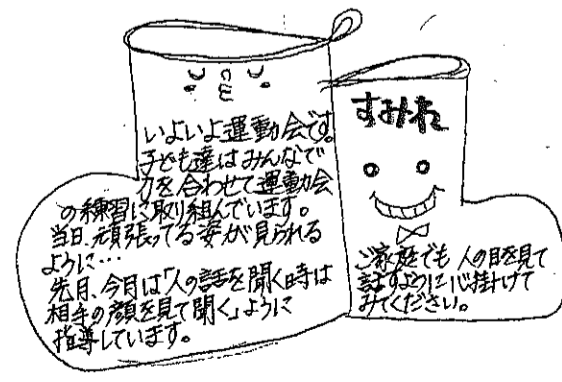 いよいよ運動会です。
子ども達はみんなで
力を合わせて運動会
の練習に取り組んでいます。
当日、頑張ってる姿が見られる
ように…
先月、今月は「人の話を聞く時は
相手の顔を見て聞く」ように
指導しています。
すみれ
ご家庭でも人の目を見て
話すように心掛けて
みてください。